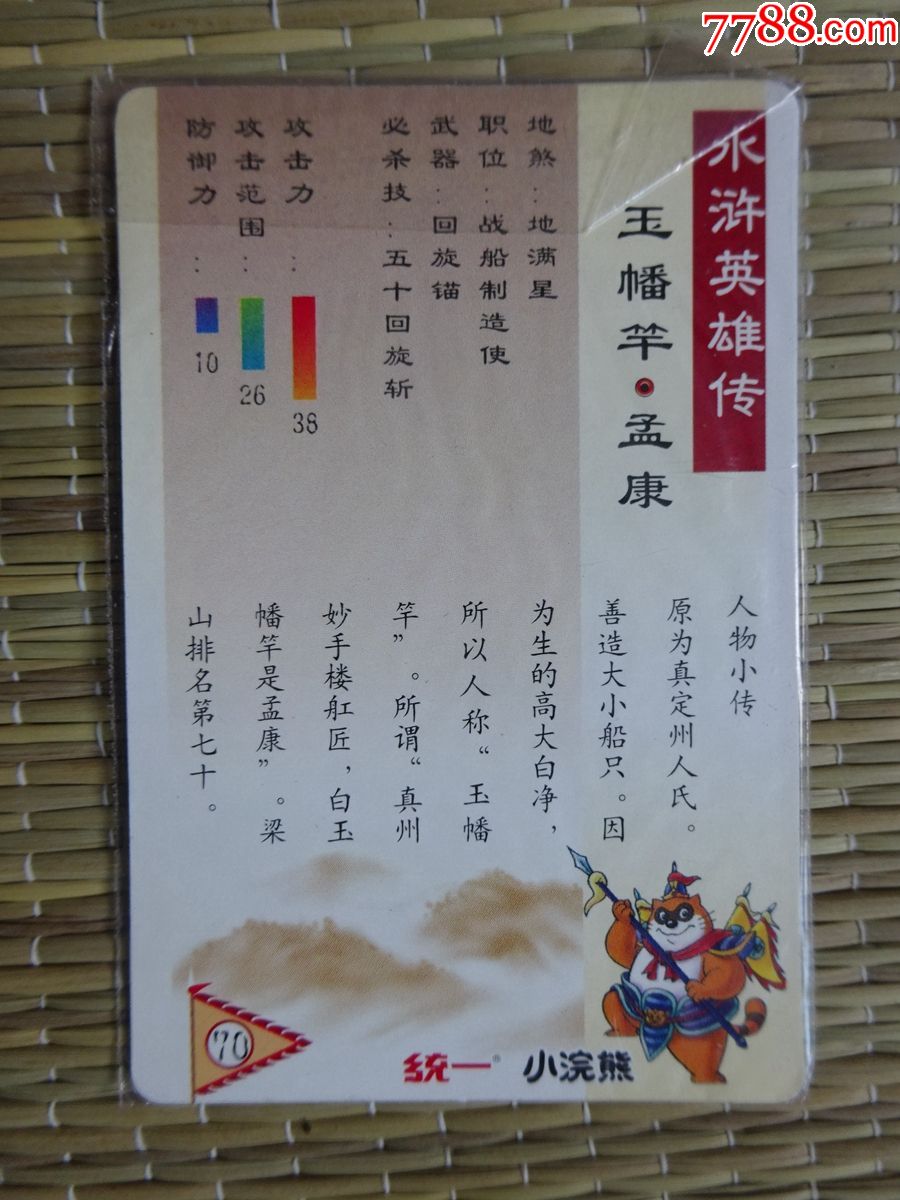 7788.com
水浒英雄传
玉幡竿·孟康
地煞：地满星
职位：战船制造使
武器：回旋锚
必杀技：五十回旋斩
攻击力：
38
攻击范围：
26
防御力：
10
人物小传
原为真定州人氏。
善造大小船只。因
为生的高大白净，
所以人称“玉幡
竿”。所谓“真州
妙手楼舡匠，白玉
幡竿是孟康”。梁
山排名第七十。
70
统一® 小浣熊